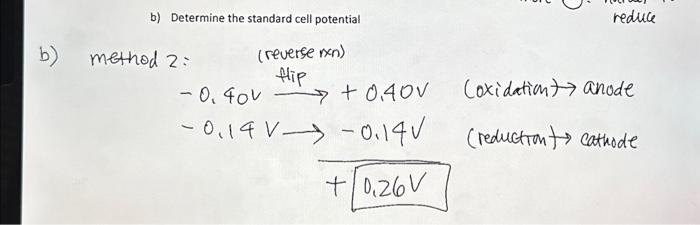 b) Determine the standard cell potential
reduce
b) method 2: (reverse rxn)
flip
-0.40V → +0.40V (oxidation) → anode
-0.14 V → -0.14V (reduction) → cathode
+ 0.26V